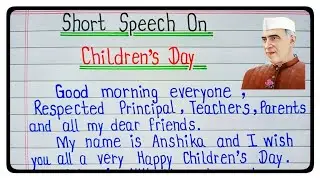 Short Speech On
Children's Day
Good morning everyone,
Respected Principal, Teachers, Parents
and all my dear friends.
My name is Anshika and I wish
you all a very Happy Children's Day.